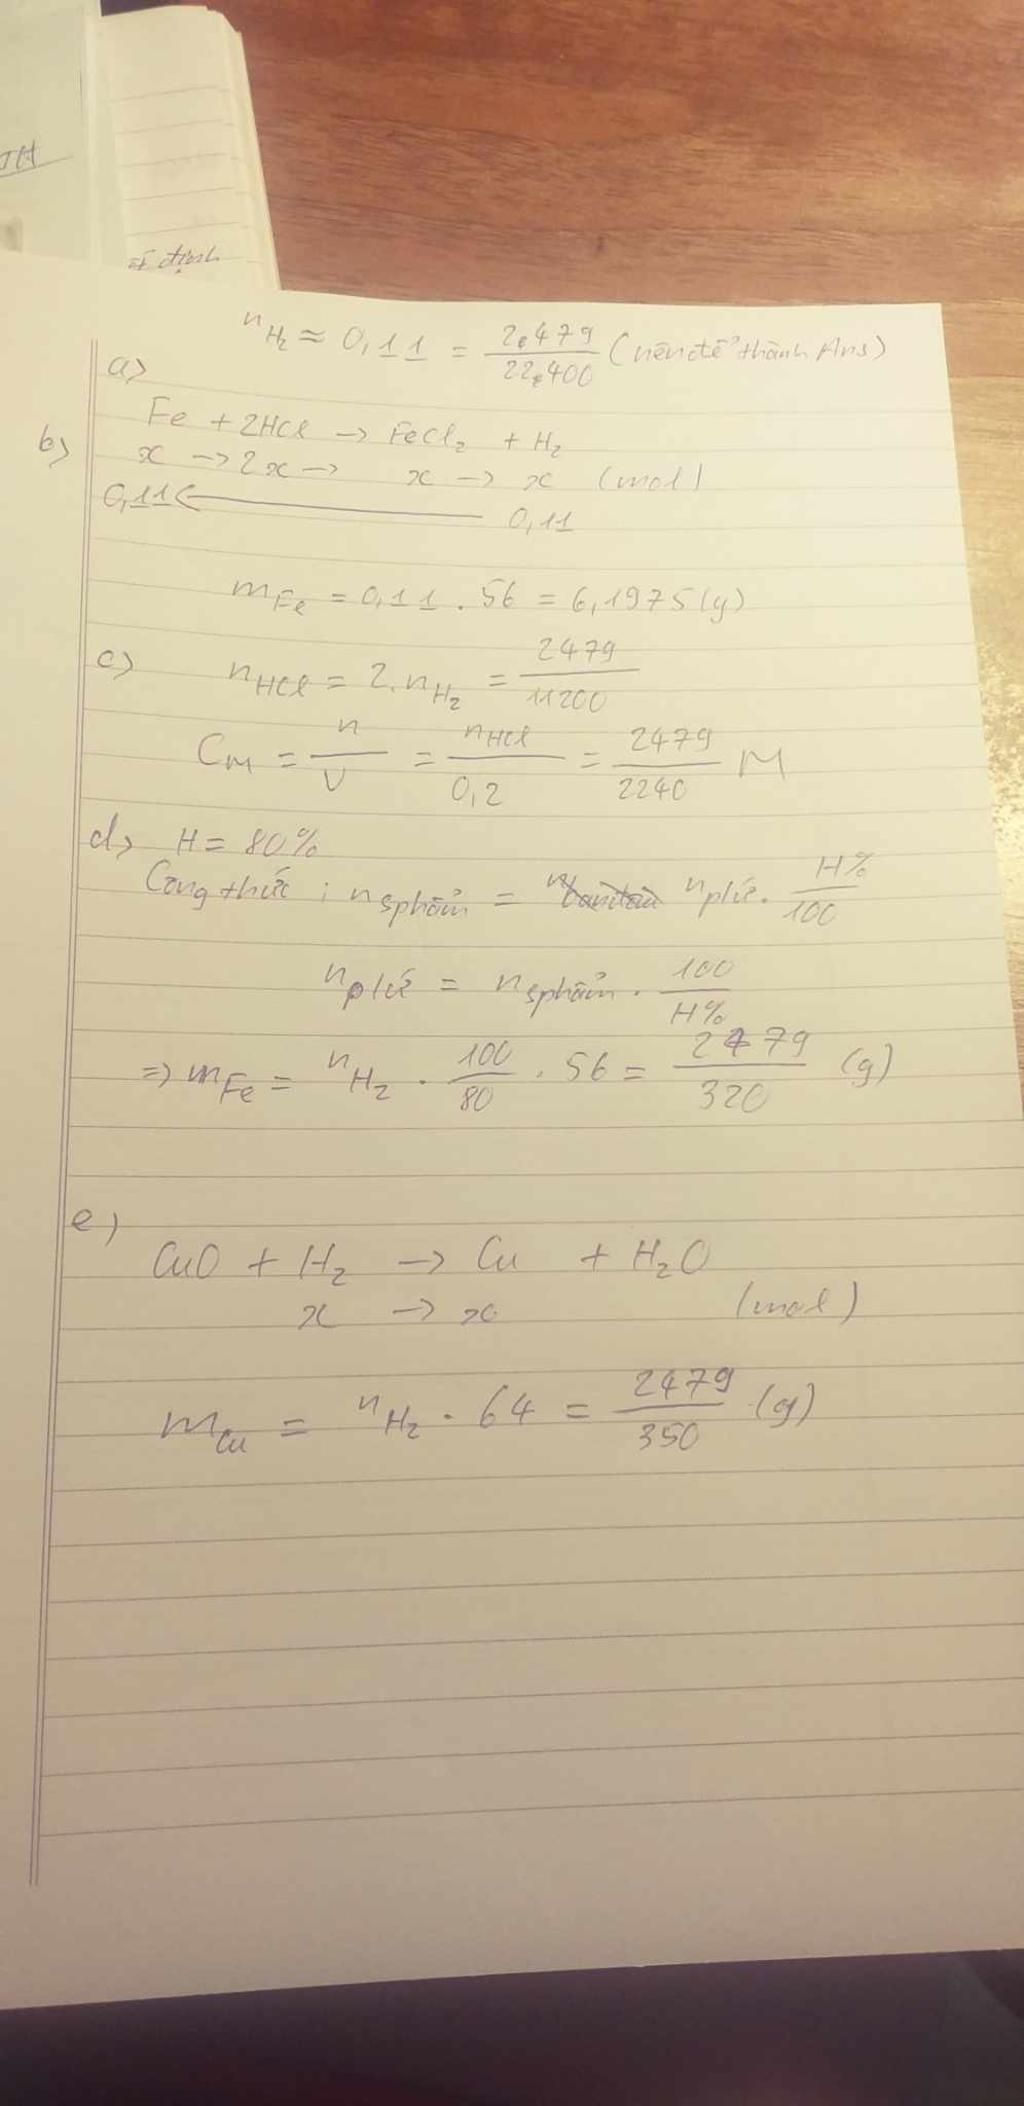 JH
ất định
nH₂ ≈ 0,11 = 2,479/22,400 (nên để thành Ans)
a)
Fe + 2HCl → FeCl₂ + H₂
b)
x → 2x → x → x (mol)
0,11 ← 0,11
mFe = 0,11 . 56 = 6,1975 (g)
c) nHCl = 2.nH₂ = 2479/11200
CM = n/V = nHCl/0,2 = 2479/2240 M
d) H = 80%
Công thức : nsphẩm = nplứ. H%/100
nplứ = nsphẩm . 100/H%
=> mFe = nH₂ . 100/80 . 56 = 2479/320 (g)
e)
CuO + H₂ → Cu + H₂O
x → x (mol)
mCu = nH₂ . 64 = 2479/350 (g)